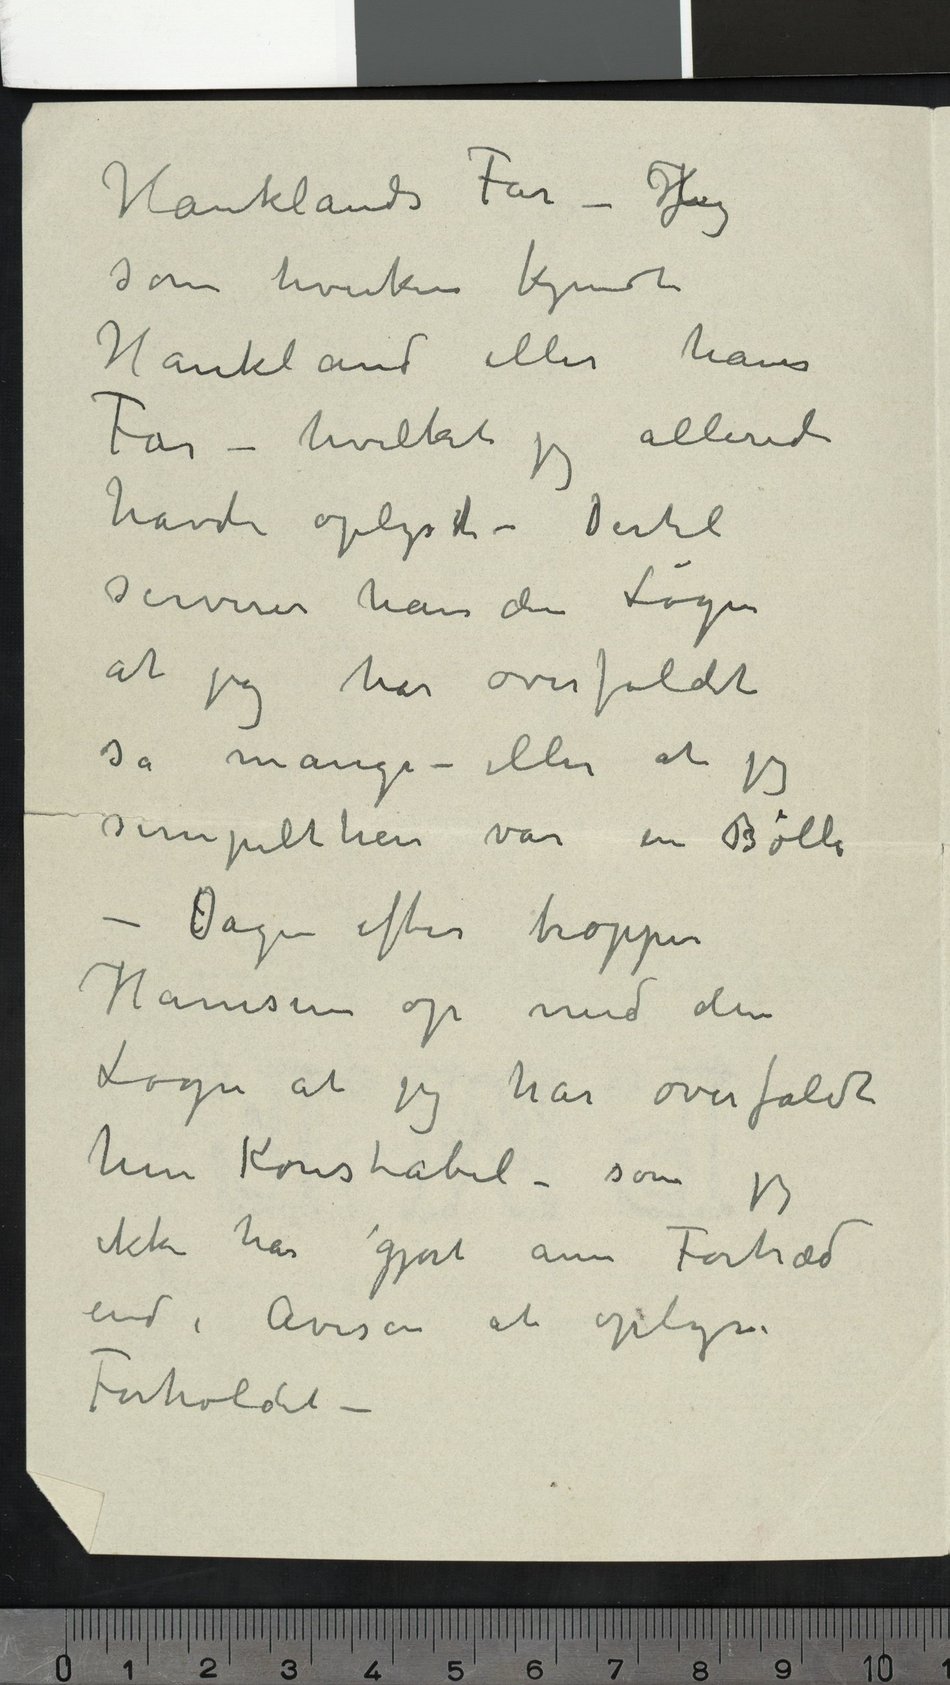 Hauklands Far – Jeg
som hverken kjendte
Haukland eller hans
Far – hvilket jeg allerede
havde oplyst – Dertil
serverer han den Løgn
at jeg har overfaldt
så mange – eller at jeg
simpelthen var en Bølle
– Dagen efter tropper
Hansen op med den
Løgn at jeg har overfaldt
hen Konstabel – som jeg
ikke har gjort ann Fortræd
end i Avisen at oplyse
Forholdet –
0 1 2 3 4 5 6 7 8 9 10